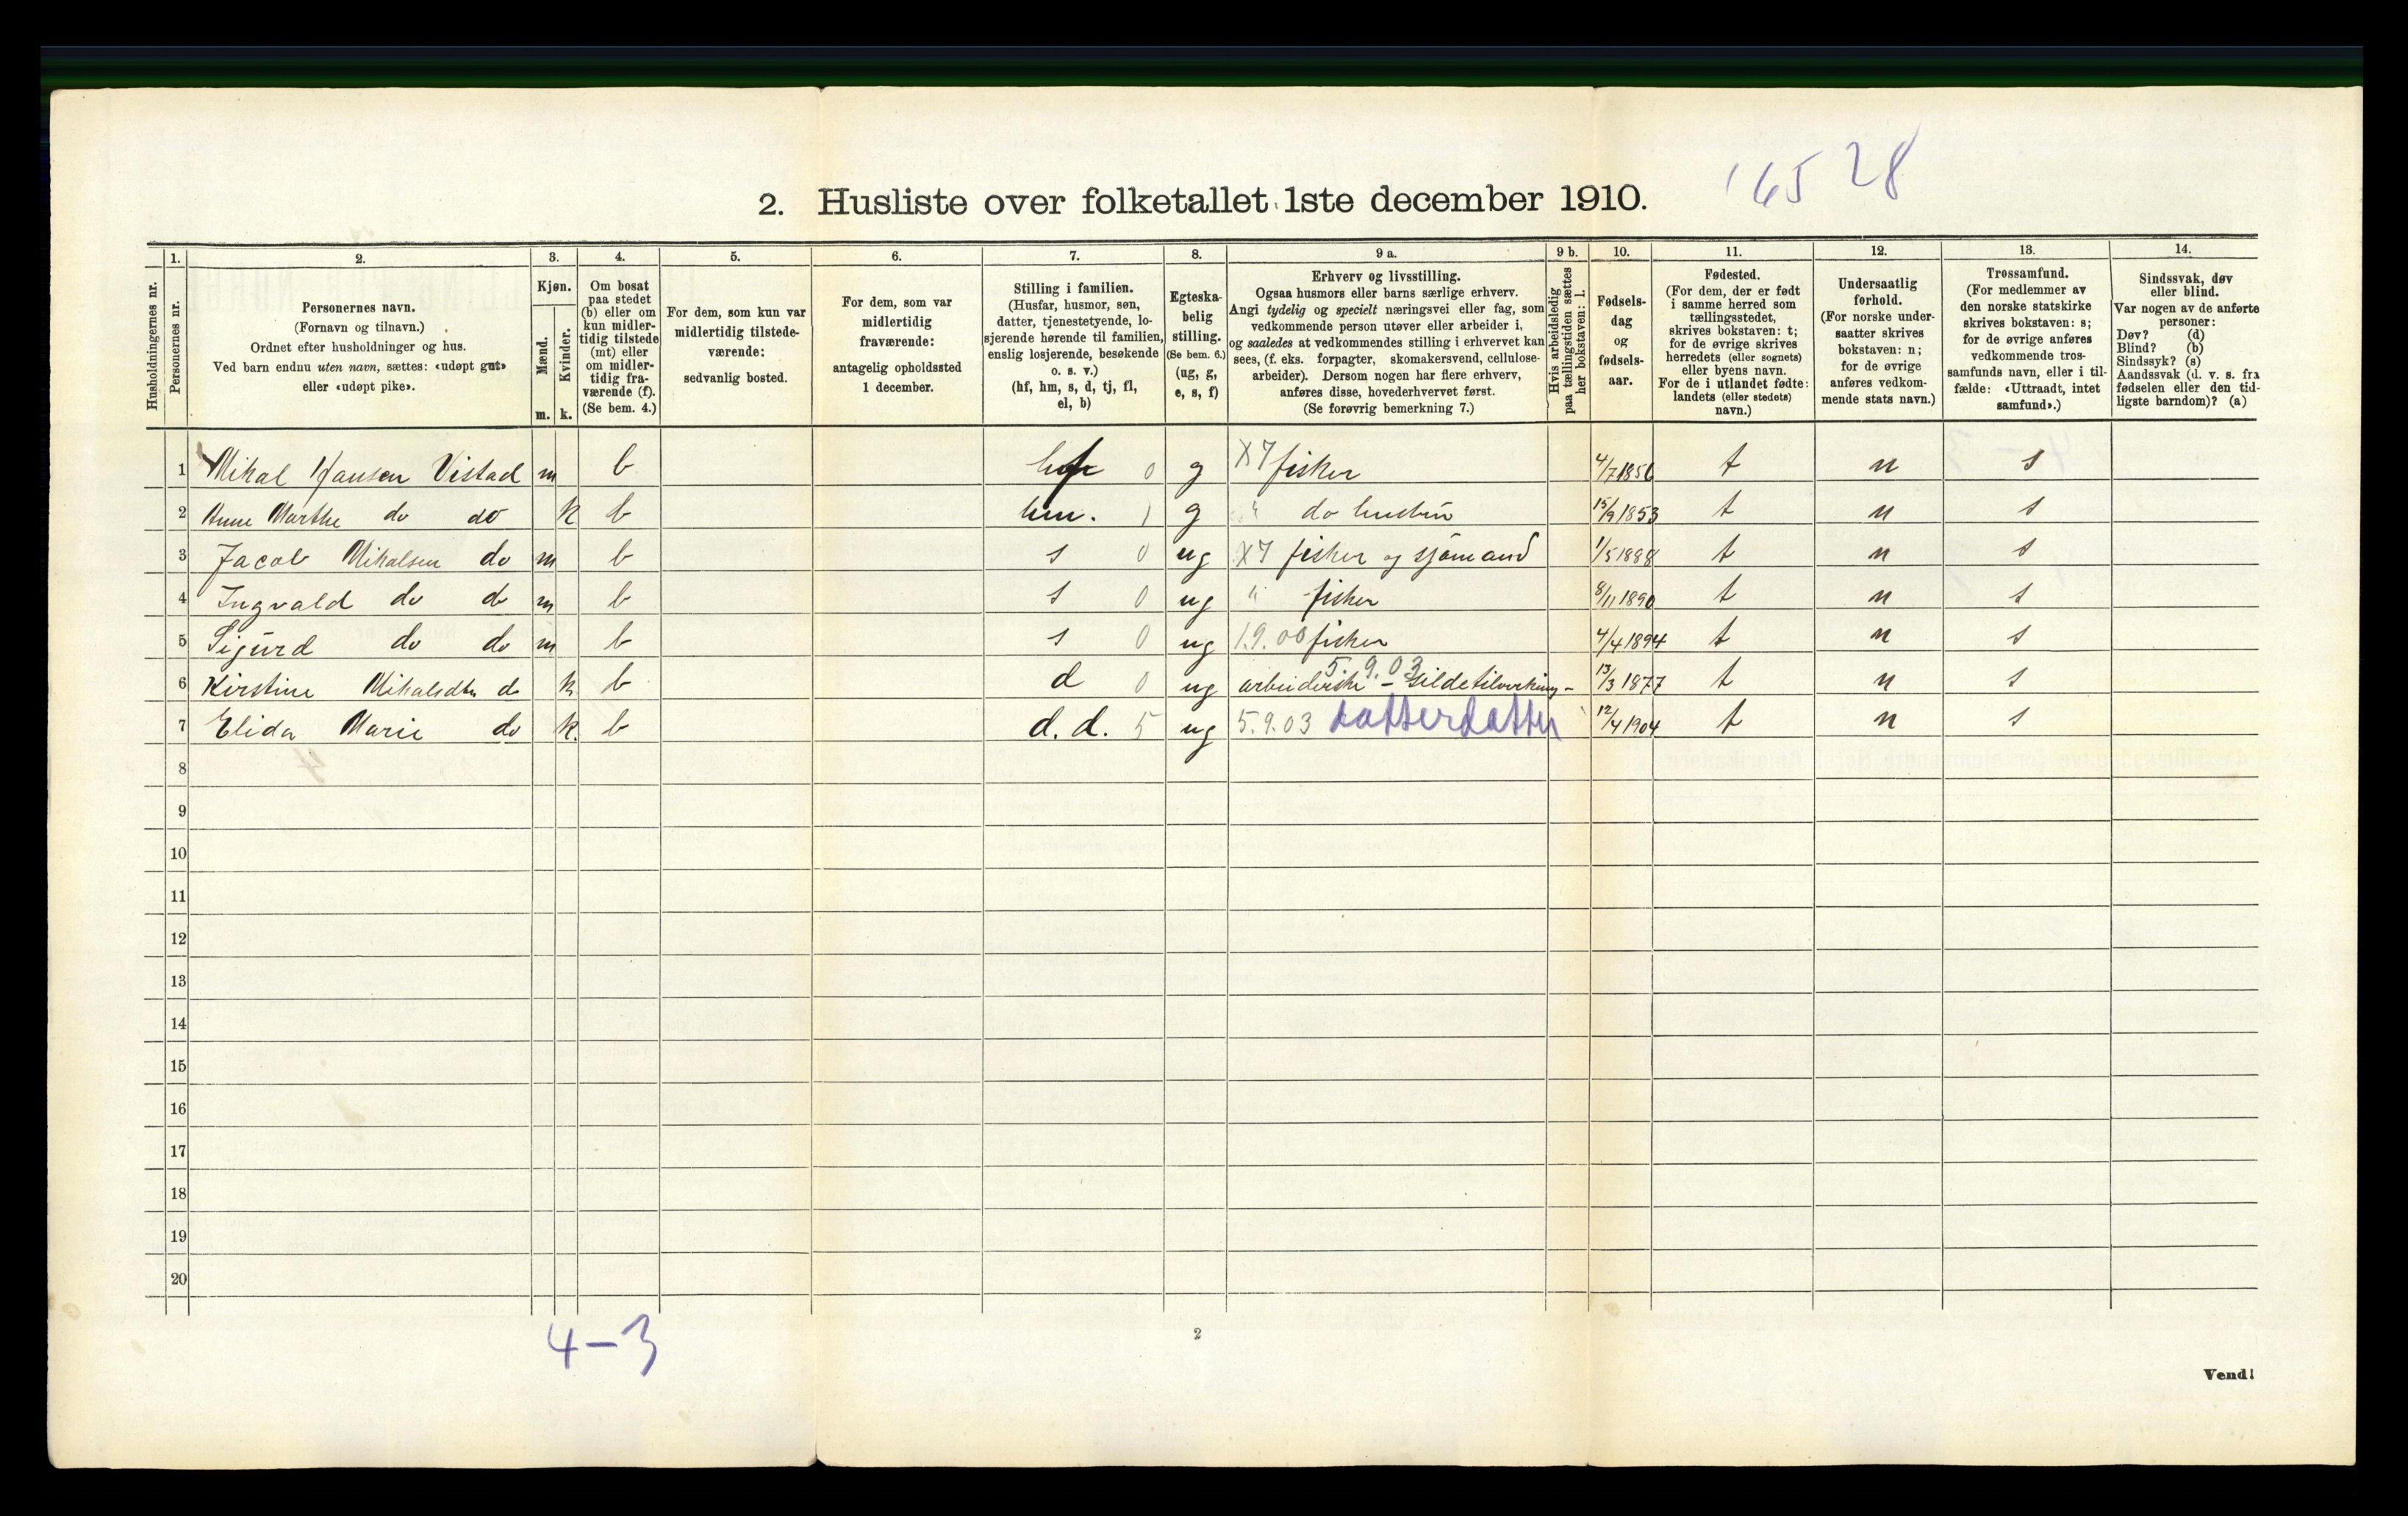 '65 28
2. Husliste over folketallet 1ste december 1910.
Husholdningernes nr.
1. Personernes nr.
2. Personernes navn.
(Fornavn og tilnavn.)
Ordnet efter husholdninger og hus.
Ved barn endnu uten navn, sættes: «udøpt gut»
eller «udøpt pike».
3. Kjøn.
Mænd. m.
Kvinder. k.
4. Om bosat
paa stedet
(b) eller om
kun midler-
tidig tilstede
(mt) eller
om midler-
tidig fra-
værende (f).
(Se bem. 4.)
5. For dem, som kun var
midlertidig tilstede-
værende:
sedvanlig bosted.
6. For dem, som var
midlertidig
fraværende:
antagelig opholdssted
1 december.
7. Stilling i familien.
(Husfar, husmor, søn,
datter, tjenestetyende, lo-
sjerende hørende til familien,
enslig losjerende, besøkende
o. s. v.)
(hf, hm, s, d, tj, fl,
el, b)
8. Egteska-
belig
stilling.
(Se bem. 6.)
(ug, g,
e, s, f)
9 a. Erhverv og livsstilling.
Ogsaa husmors eller barns særlige erhverv.
Angi tydelig og specielt næringsvei eller fag, som
vedkommende person utøver eller arbeider i,
og saaledes at vedkommendes stilling i erhvervet kan
sees, (f. eks. forpagter, skomakersvend, cellulose-
arbeider). Dersom nogen har flere erhverv,
anføres disse, hovederhvervet først.
(Se forøvrig bemerkning 7.)
9 b. Hvis arbeidsledig
paa tællingstiden sættes
her bokstaven: l.
10. Fødsels-
dag
og
fødsels-
aar.
11. Fødested.
(For dem, der er født
i samme herred som
tællingsstedet,
skrives bokstaven: t;
for de øvrige skrives
herredets (eller sognets)
eller byens navn.
For de i utlandet fødte:
landets (eller stedets)
navn.)
12. Undersaatlig
forhold.
(For norske under-
saatter skrives
bokstaven: n;
for de øvrige
anføres vedkom-
mende stats navn.)
13. Trossamfund.
(For medlemmer av
den norske statskirke
skrives bokstaven: s;
for de øvrige anføres
vedkommende tros-
samfunds navn, eller i til-
fælde: «Uttraadt, intet
samfund».)
14. Sindssvak, døv
eller blind.
Var nogen av de anførte
personer:
Døv? (d)
Blind? (b)
Sindssyk? (s)
Aandssvak (d. v. s. fra
fødselen eller den tid-
ligste barndom)? (a)
1 Mikal Hansen Vistad m b hf 0 g X7 fisker 4/7 1856 t n s
2 Anne Marthe do do k b hm. 1 g " do hustru 15/9 1853 t n s
3 Jacob Mikalsen do m b s 0 ug X7 fisker og sjømand 1/5 1888 t n s
4 Ingvald do do m b s 0 ug " fisker 8/11 1890 t n s
5 Sigurd do do m b s 0 ug 1.9.00 fisker 4/4 1894 t n s
6 Kirstine Mikalsdtr do k b d 0 ug 5.9.03 arbeiderske - Sildetilvirkning - 13/3 1877 t n s
7 Elida Marie do k. b d. d. 5 ug 5.9.03 datterdatter 12/4 1904 t n s
8
9
10
11
12
13
14
15
16
17
18
19
20
4-3
2
Vend!